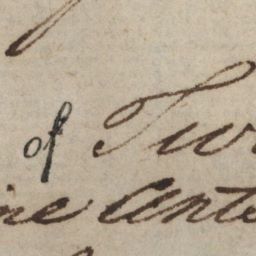 of Tw
ine ante